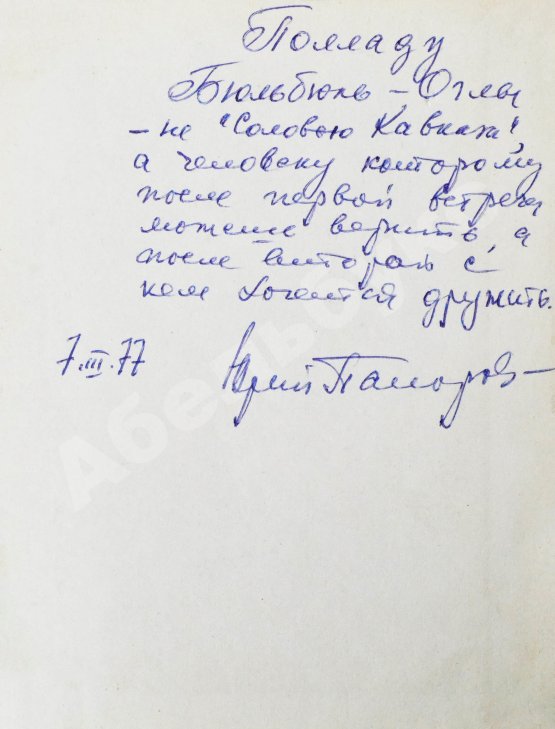 Полладу
Бюльбюль-Оглы
– не "Соловью Кавказа",
а человеку которому
после первой встречи
можешь верить, а
после второй с
кем хочется дружить.
7.III.77
Юрий Паморов
Абельбук